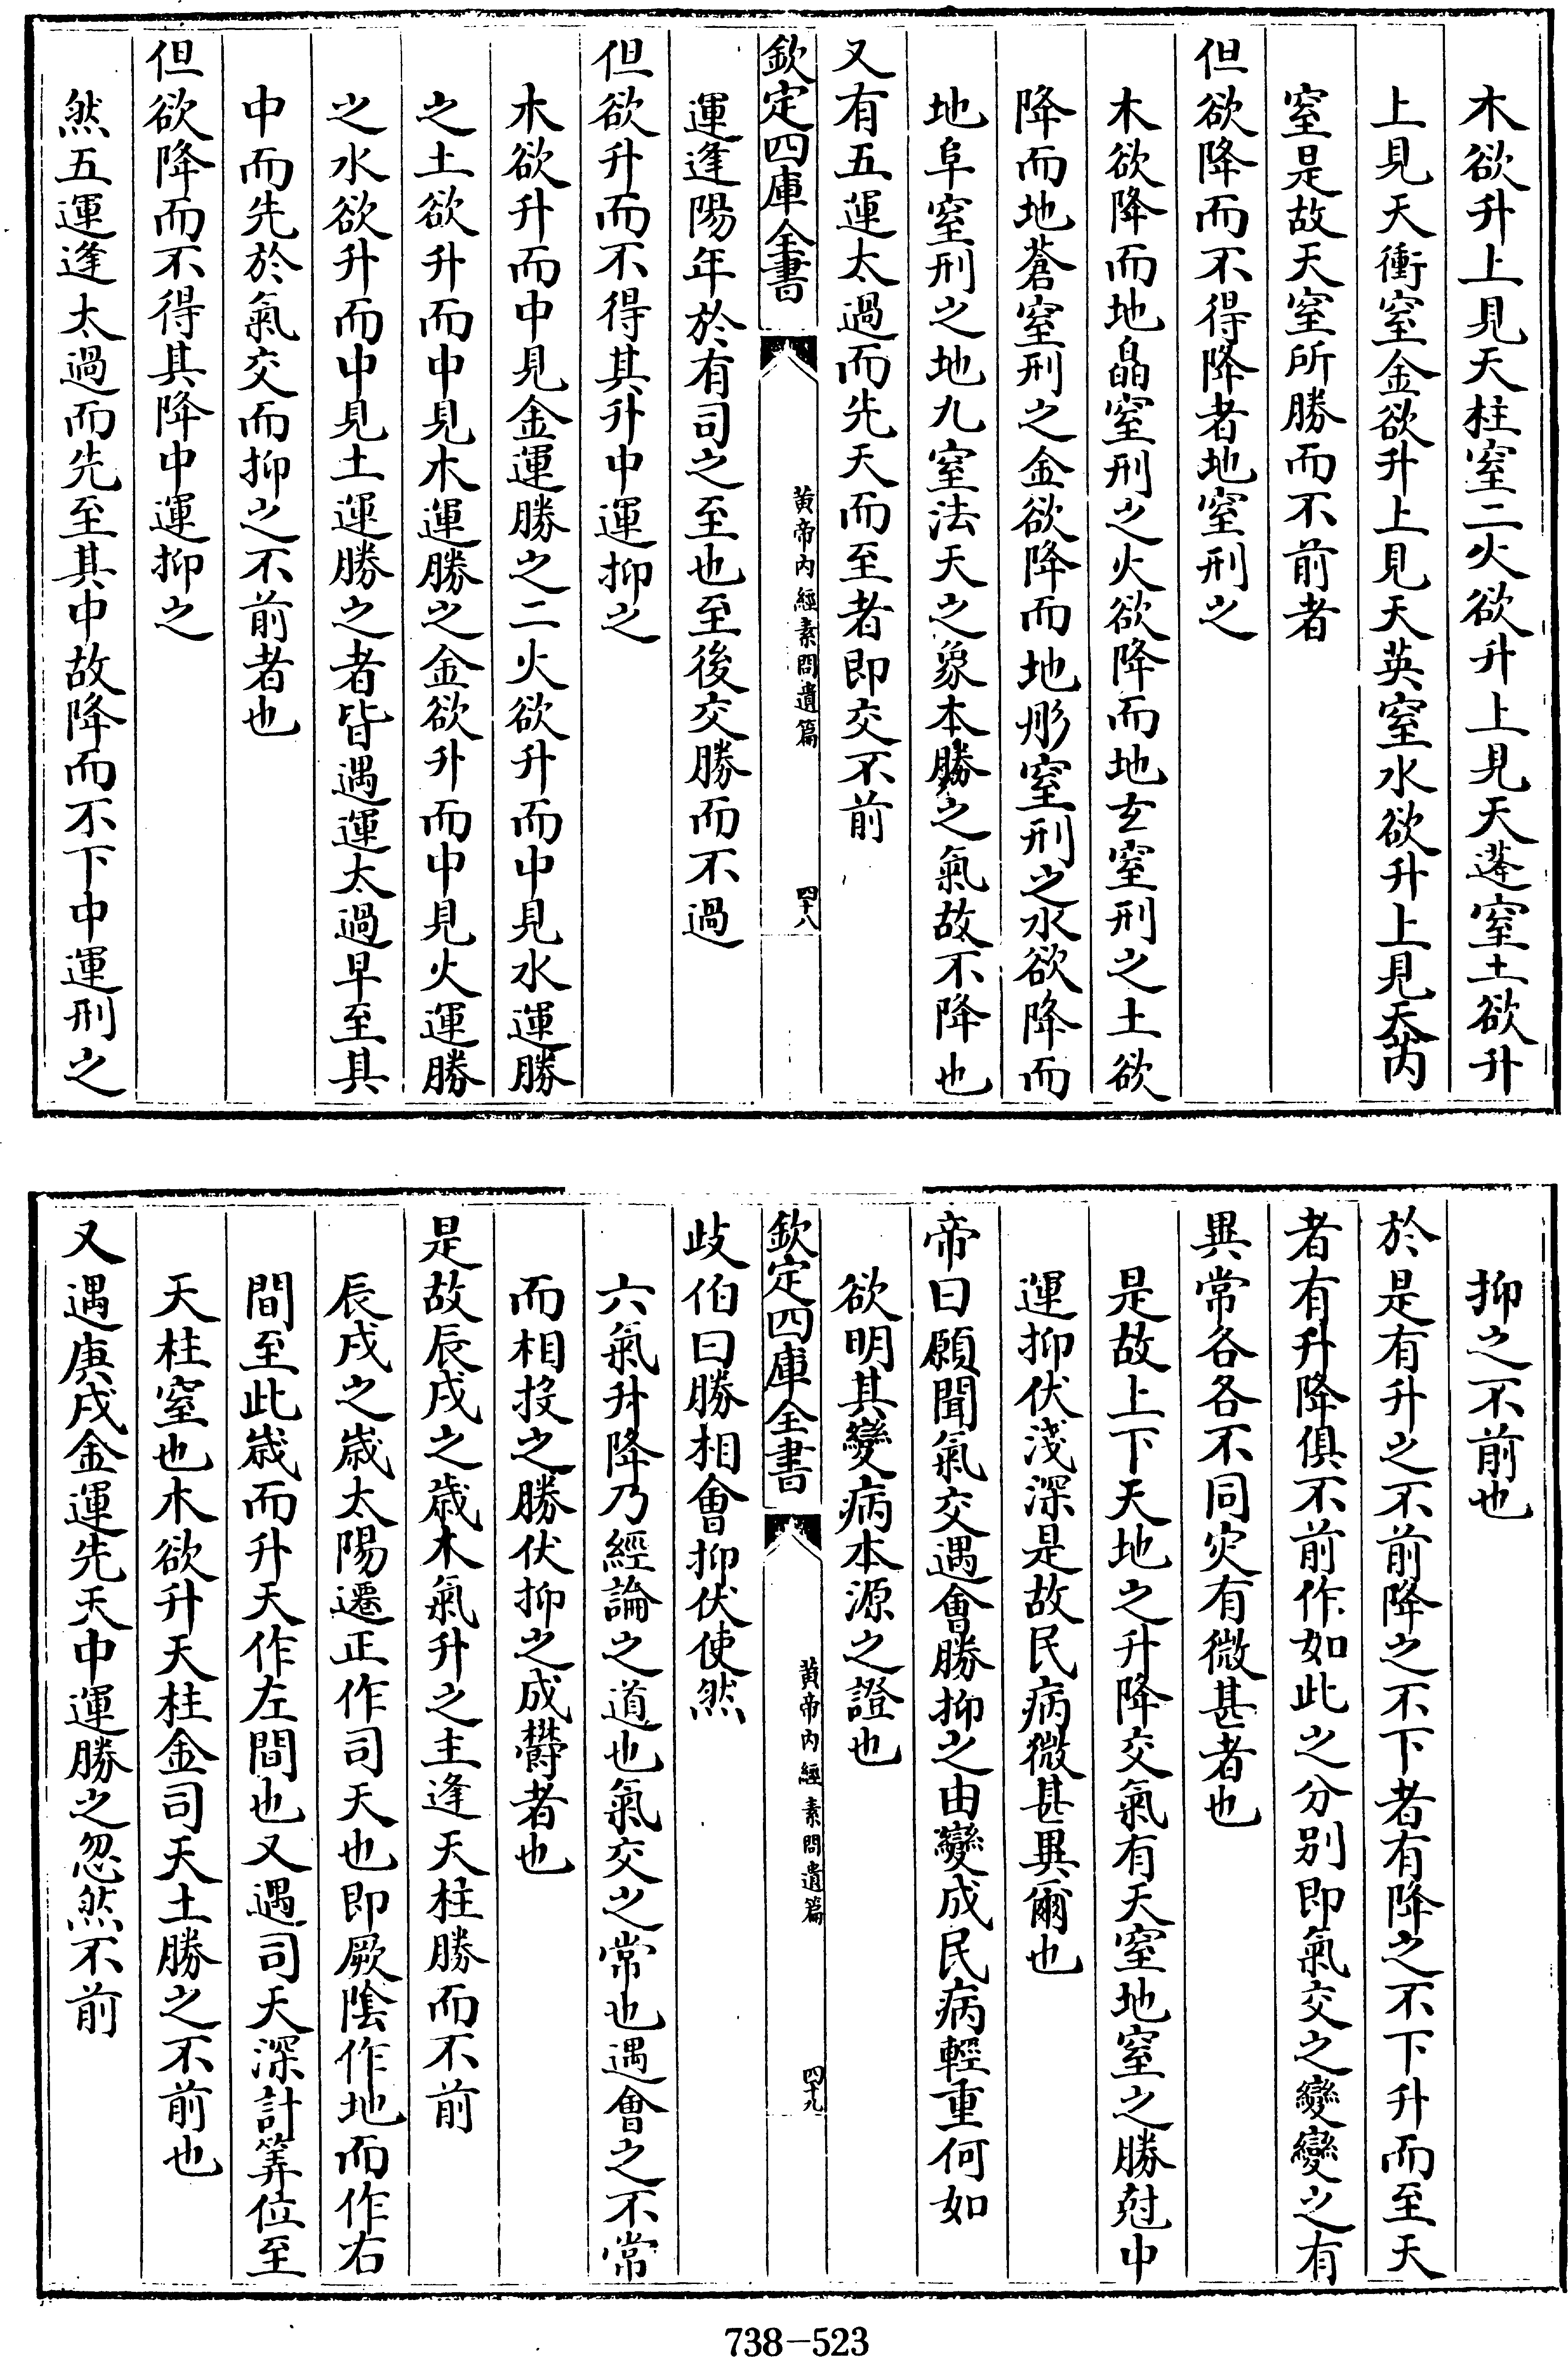 木欲升上見天柱窒二火欲升上見天蓬窒土欲升
上見天衝窒金欲升上見天英窒水欲升上見天芮
窒是故天窒所勝而不前者
但欲降而不得降者地窒刑之
木欲降而地皛窒刑之火欲降而地玄窒刑之土欲
降而地蒼窒刑之金欲降而地彤窒刑之水欲降而
地阜窒刑之地九窒法天之象本勝之氣故不降也
又有五運太過而先天而至者即交不前
欽定四庫全書
黄帝內經素問遺篇
四十八
運逢陽年於有司之至也至後交勝而不過
但欲升而不得其升中運抑之
木欲升而中見金運勝之二火欲升而中見水運勝
之土欲升而中見木運勝之金欲升而中見火運勝
之水欲升而中見土運勝之者皆遇運太過早至其
中而先於氣交而抑之不前者也
但欲降而不得其降中運抑之
然五運逢太過而先至其中故降而不下中運刑之
抑之不前也
於是有升之不前降之不下者有降之不下升而至天
者有升降俱不前作如此之分别即氣交之變變之有
異常各各不同灾有微甚者也
是故上下天地之升降交氣有天窒地窒之勝尅中
運抑伏淺深是故民病微甚異爾也
帝曰願聞氣交遇會勝抑之由變成民病輕重何如
欲明其變病本源之證也
欽定四庫全書
黄帝內經素問遺篇
四十九
歧伯曰勝相會抑伏使然
六氣升降乃經論之道也氣交之常也遇會之不常
而相投之勝伏抑之成欝者也
是故辰戌之歲木氣升之主逢天柱勝而不前
辰戌之歲太陽遷正作司天也即厥陰作地而作右
間至此歲而升天作左間也又遇司天深計筭位至
天柱窒也木欲升天柱金司天土勝之不前也
又遇庚戌金運先天中運勝之忽然不前
738-523